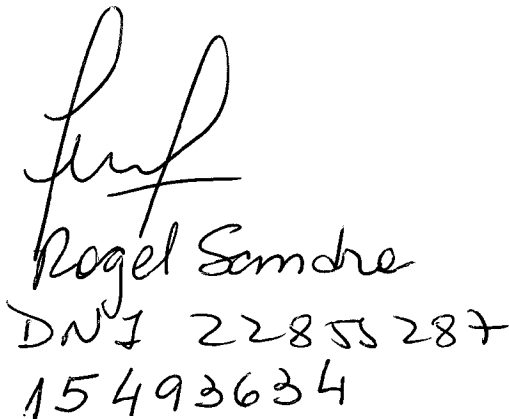 Rogel Sandra
DNI 22855287
15493634